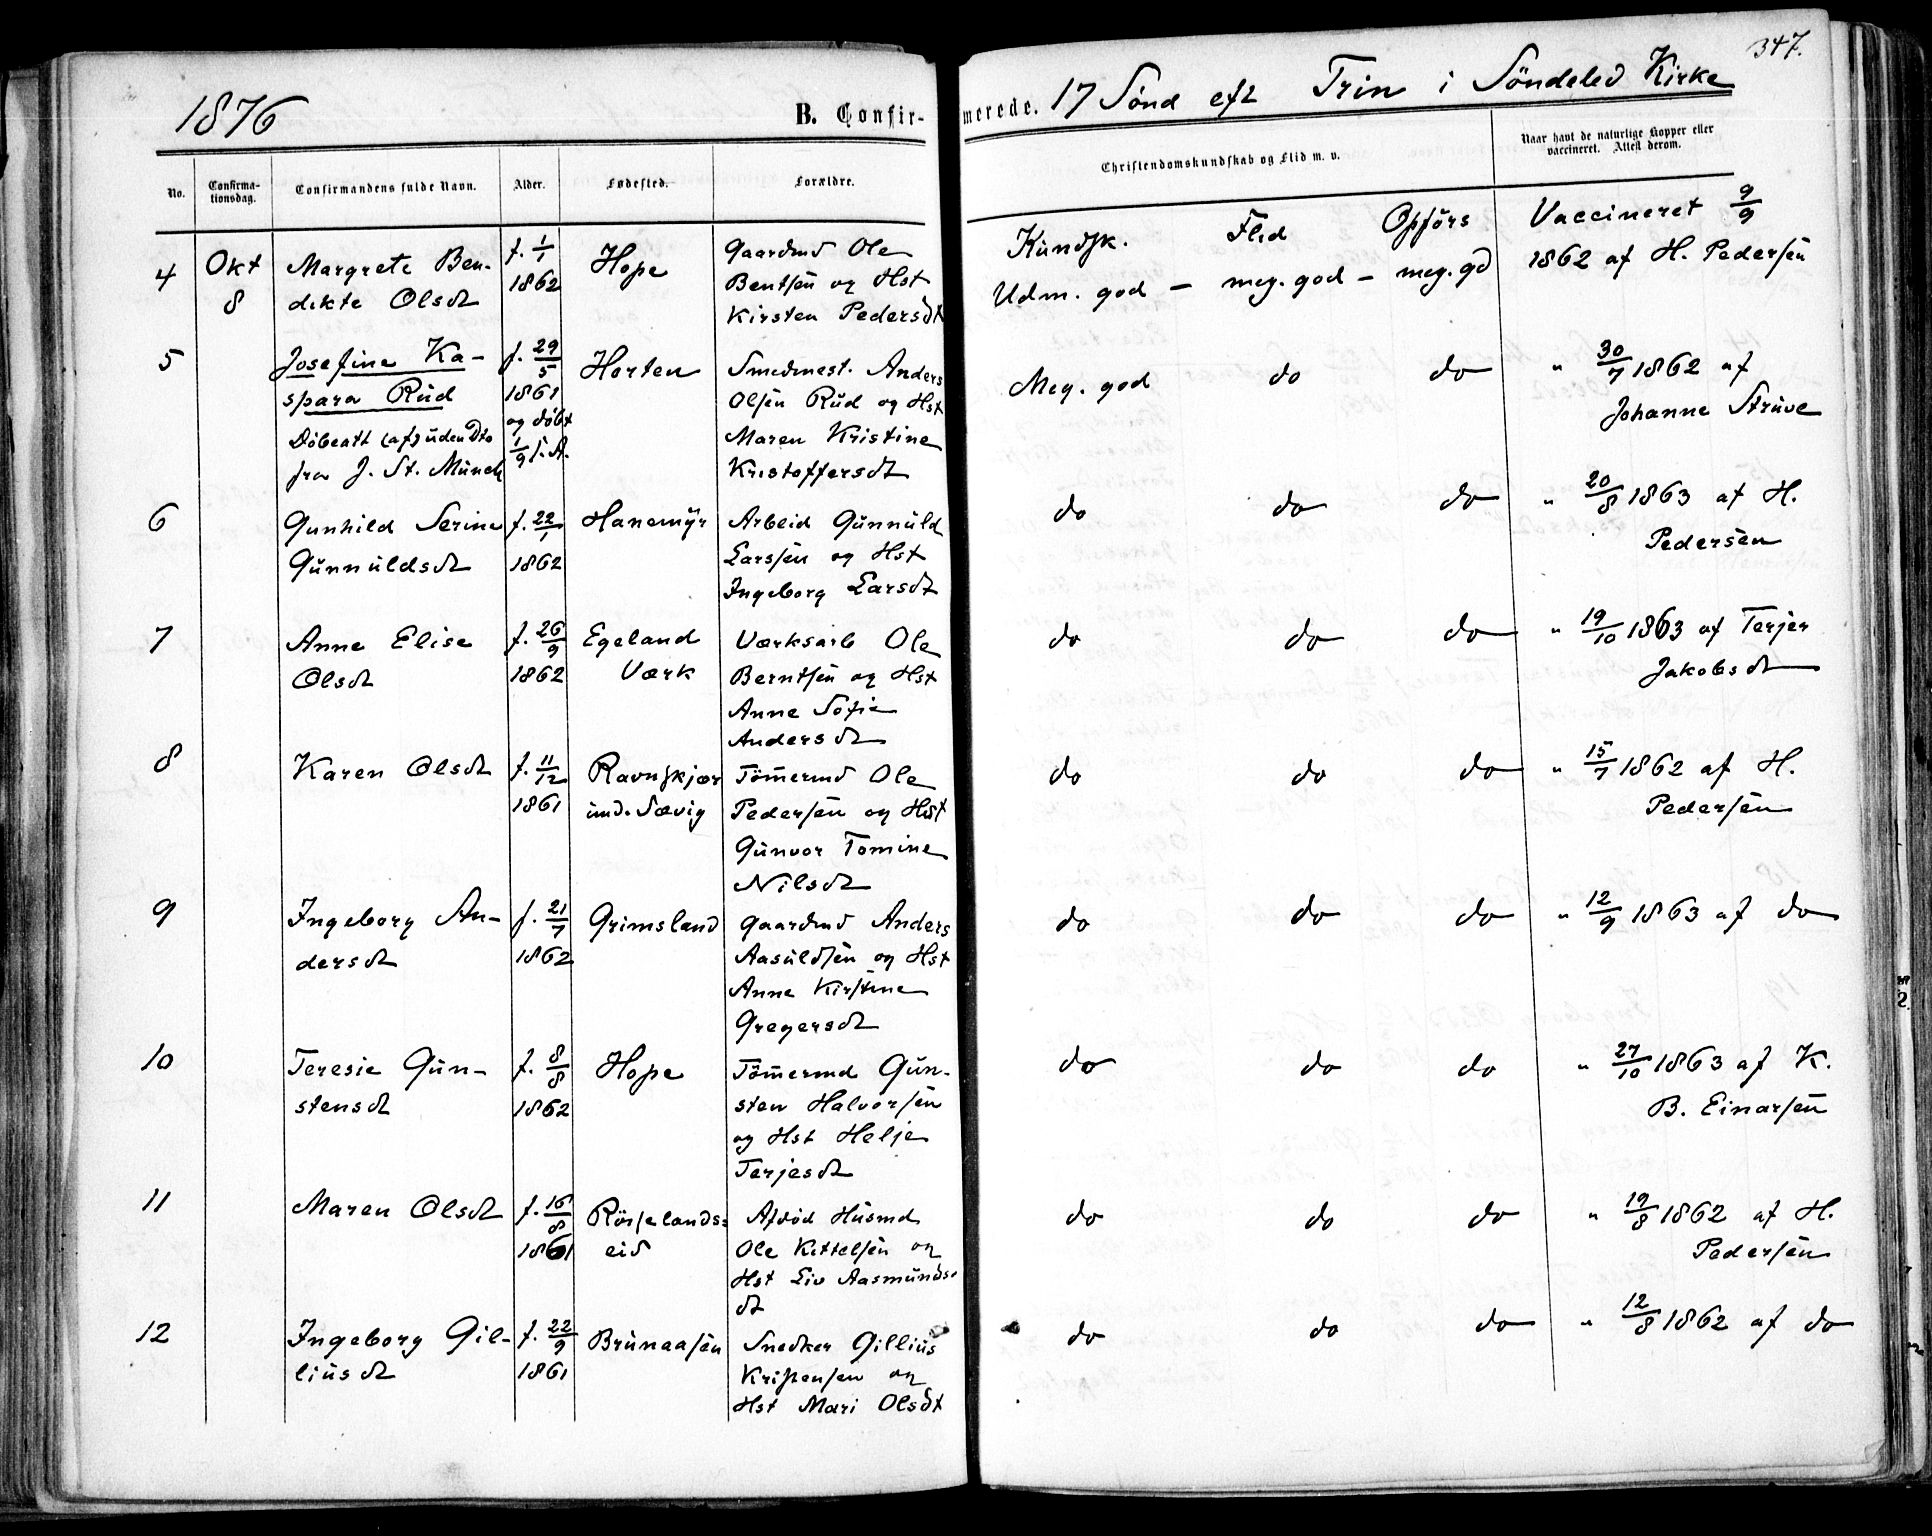 347.
1876
B. Confir-
merede. 17 Sönd eft Trin i Söndeled Kirke
No.
Confirma-
tionsdag.
Confirmandens fulde Navn.
Alder.
Fødested.
Forældre.
Christendomskundskab og Flid m. v.
Naar havt de naturlige Kopper eller
vaccineret. Attest derom.
4
Okt
8
Margrete Ben-
dikte Olsdt
f. 1/1
1862
Hope
Gaardmd Ole
Bentsen og Hst
Kirsten Pedersdt
Kundsk. Flid Opförs
Udm. god – meg. god – meg. gd
Vaccineret 9/9
1862 af H. Pedersen
5
Josefine Ka-
spara Rud
Döbeatt (af) uden Dto
fra J. St. Münch
f. 29/5
1861
og döbt
1/9 s. A.
Horten
Smedmest. Anders
Olsen Rud og Hst
Maren Kristine
Kristoffersdt
Meg. god do do
" 30/7 1862 af
Johanne Struve
6
Gunhild Serine
Gunnuldsdt
f. 22/1
1862
Hanemyr
Arbeid Gunnuld
Larssen og Hst
Ingeborg Larsdt
do do do
" 20/8 1863 af H.
Pedersen
7
Anne Elise
Olsdt
f. 26/9
1862
Egeland
Værk
Værksarb Ole
Berntsen og Hst
Anne Sofie
Andersdt
do do do
" 19/10 1863 af Terjer
Jakobsdt
8
Karen Olsdt
f. 11/12
1861
Ravnskjær
und. Sævig
Tömermd Ole
Pedersen og Hst
Gunvor Tomine
Nilsdt
do do do
" 15/7 1862 af H.
Pedersen
9
Ingeborg An-
dersdt
f. 21/7
1862
Grimsland
Gaardmd Anders
Aasuldsen og Hst
Anne Kirstine
Gregersdt
do do do
" 12/9 1863 af do
10
Teresie Gun-
stensdt
f. 8/8
1862
Hope
Tömermd Gun-
sten Halvorsen
og Hst Helje
Terjesdt
do do do
" 27/10 1863 af K.
B. Einarsen
11
Maren Olsdt
f. 16/8
1861
Rörselands=
eid
Afdöd Husmd
Ole Kittelsen og
Hst Liv Aasmunds-
dt
do do do
" 19/8 1862 af H.
Pedersen
12
Ingeborg Gil-
liusdt
f. 22/9
1861
Brunaasen
Snedker Gillius
Kristensen og
Hst Mari Olsdt
do do do
" 12/8 1862 af do